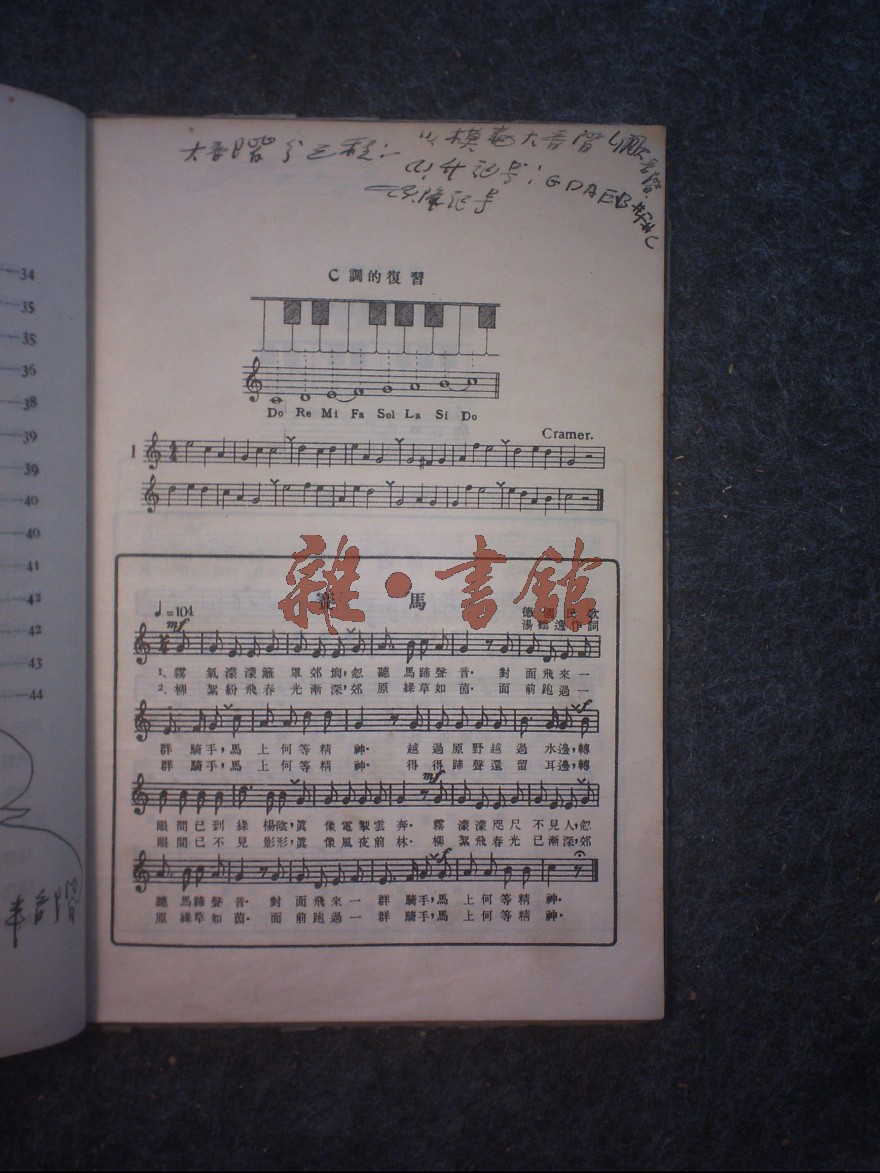 34
35
35
36
38
39
39
40
40
41
42
42
43
44
大音階
G D A E B
C 調的復習
Do Re Mi Fa Sol La Si Do
Cramer.
1
雜・書館
馬
♩=104
德國民歌
作詞
mf
1. 霧 氣濛濛 罩郊 忽聽 馬蹄聲音. 對面飛來一
2. 柳 絮紛飛春光漸深, 郊原綠草如茵. 面前跑過一
f
群 騎手, 馬上何等精神. 越過原野越過水邊, 轉
群 騎手, 馬上何等精神. 得得蹄聲還留耳邊, 轉
mf
眼間已到綠楊陰, 眞像電掣雲奔. 霧濛濛咫尺不見人, 忽
眼間已不見影形, 眞像風夜前林. 柳絮飛春光已漸深, 郊
f
聽馬蹄聲音. 對面飛來一群騎手, 馬上何等精神.
原綠草如茵. 面前跑過一群騎手, 馬上何等精神.